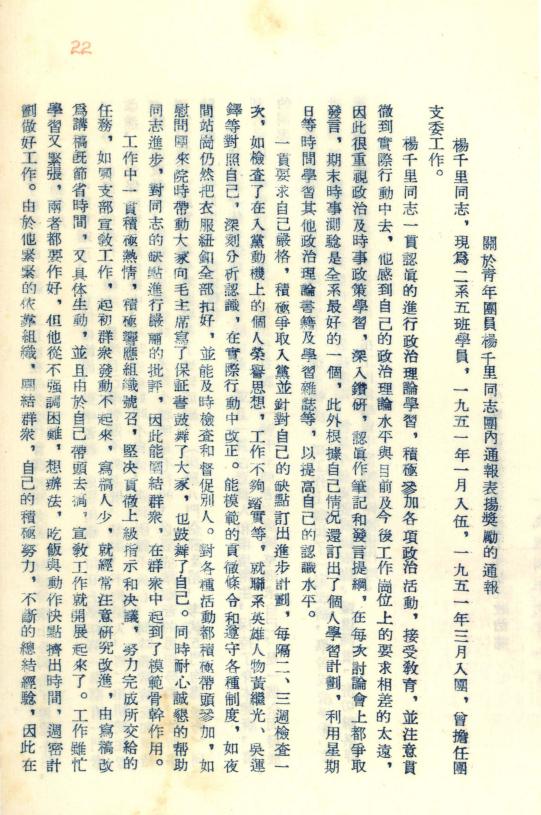 22
關於青年團員楊千里同志團內通報表揚獎勵的通報
楊千里同志,現爲二系五班學員,一九五一年一月入伍,一九五一年三月入團,曾擔任團
支委工作。
楊千里同志一貫認眞的進行政治理論學習,積極參加各項政治活動,接受教育,並注意貫
徹到實際行動中去,他感到自己的政治理論水平與目前及今後工作崗位上的要求相差的太遠,
因此很重視政治及時事政策學習,深入鑽研,認眞作筆記和發言提綱,在每次討論會上都爭取
發言,期末時事測驗是全系最好的一個,此外根據自己情況還訂出了個人學習計劃,利用星期
日等時間學習其他政治理論書籍及學習雜誌等,以提高自己的認識水平。
一貫要求自己嚴格,積極爭取入黨並針對自己的缺點訂出進步計劃,每隔二、三週檢查一
次,如檢查了在入黨動機上的個人榮譽思想,工作不夠踏實等,就聯系英雄人物黃繼光、吳運
鐸等對照自己,深刻分析認識,在實際行動中改正。能模範的貫徹條令和遵守各種制度,如夜
間站崗仍然把衣服紐釦全部扣好,並能及時檢查和督促別人。對各種活動都積極帶頭參加,如
慰問團來院時帶動大家向毛主席寫了保証書鼓舞了大家,也鼓舞了自己。同時耐心誠懇的帮助
同志進步,對同志的缺點進行嚴肅的批評,因此能團結群衆,在群衆中起到了模範骨幹作用。
工作中一貫積極熱情,積極響應組織號召,堅决貫徹上級指示和决議,努力完成所交給的
任務,如團支部宣敎工作,起初群衆發動不起來,寫稿人少,就經常注意研究改進,由寫稿改
爲講稿旣節省時間,又具体生動,並且由於自己帶頭去搞,宣敎工作就開展起來了。工作雖忙
學習又緊張,兩者都要作好,但他從不強調困難,想辦法,吃飯與動作快點擠出時間,週密計
劃做好工作。由於他緊緊的依靠組織,團結群衆,自己的積極努力,不斷的總結經驗,因此在